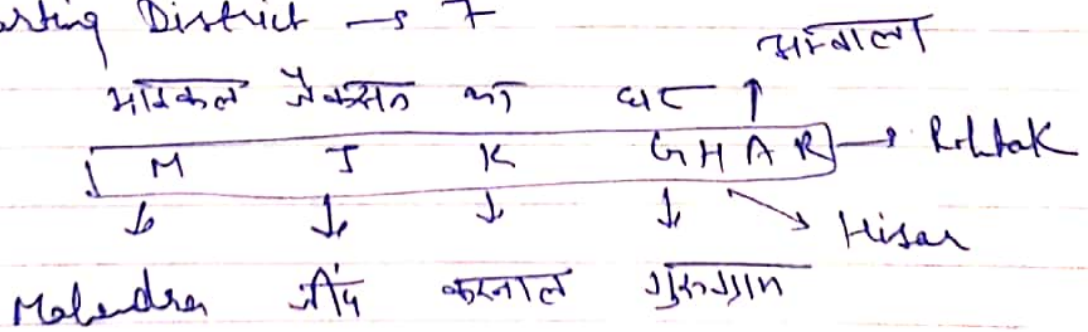 District → 7
अम्बाला
माईकल जैक्सन का घर ↑
M J K G H A R → Rohtak
↓ ↓ ↓ ↓ ↘ Hisar
Mahendra जींद करनाल गुरुग्राम